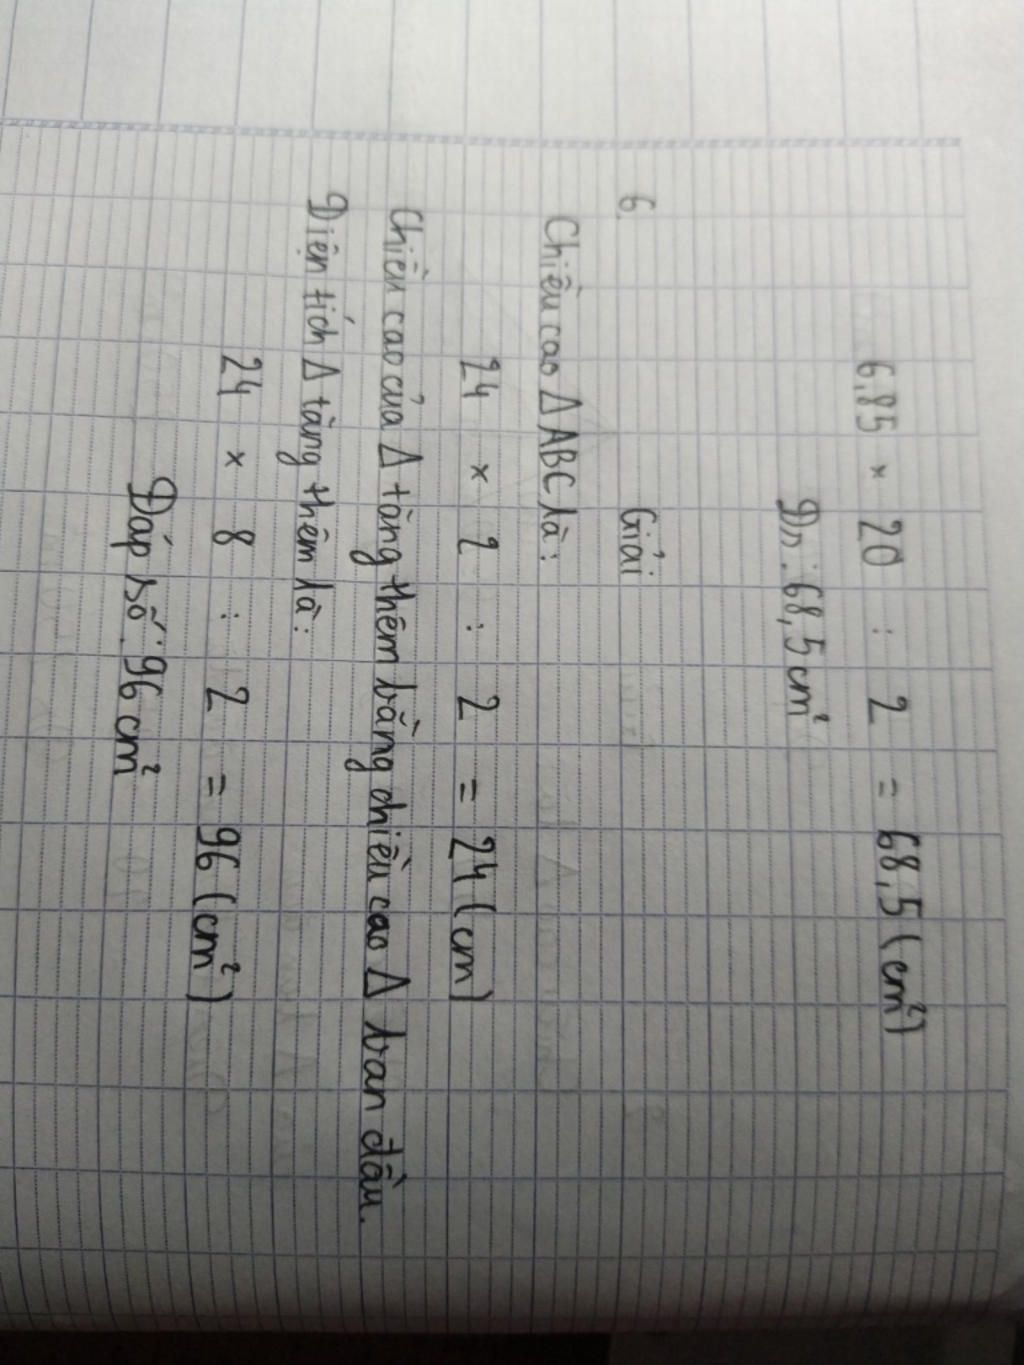 6,85 × 20 : 2 = 68,5 (cm²)
Đs : 68,5 cm²
6.
Giải
Chiều cao Δ ABC là :
24 × 2 : 2 = 24 (cm)
Chiều cao của Δ tăng thêm bằng chiều cao Δ ban đầu.
Diện tích Δ tăng thêm là :
24 × 8 : 2 = 96 (cm²)
Đáp số : 96 cm²